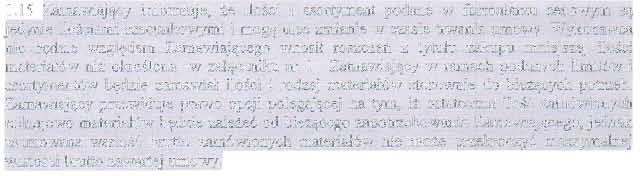 1.15 Zamawiający informuje, że ilości i asortyment podane w formularzu cenowym są
jedynie ilościami szacunkowymi i mogą ulec zmianie w czasie trwania umowy. Wykonawca
nie będzie względem Zamawiającego wnosił roszczeń z tytułu zakupu mniejszej ilości
materiałów niż określona w załączniku nr Zamawiający w ramach podanych limitów i
asortymentów będzie zamawiał ilości i rodzaj materiałów stosownie do bieżących potrzeb.
Zamawiający przewiduje prawo opcji polegającej na tym, iż ostateczna ilość zamówionych
rodzajowo materiałów będzie zależeć od bieżącego zapotrzebowania Zamawiającego, jednak
sumowana wartość brutto zamówionych materiałów nie może przekroczyć maksymalnej
wartości brutto zawartej umowy.